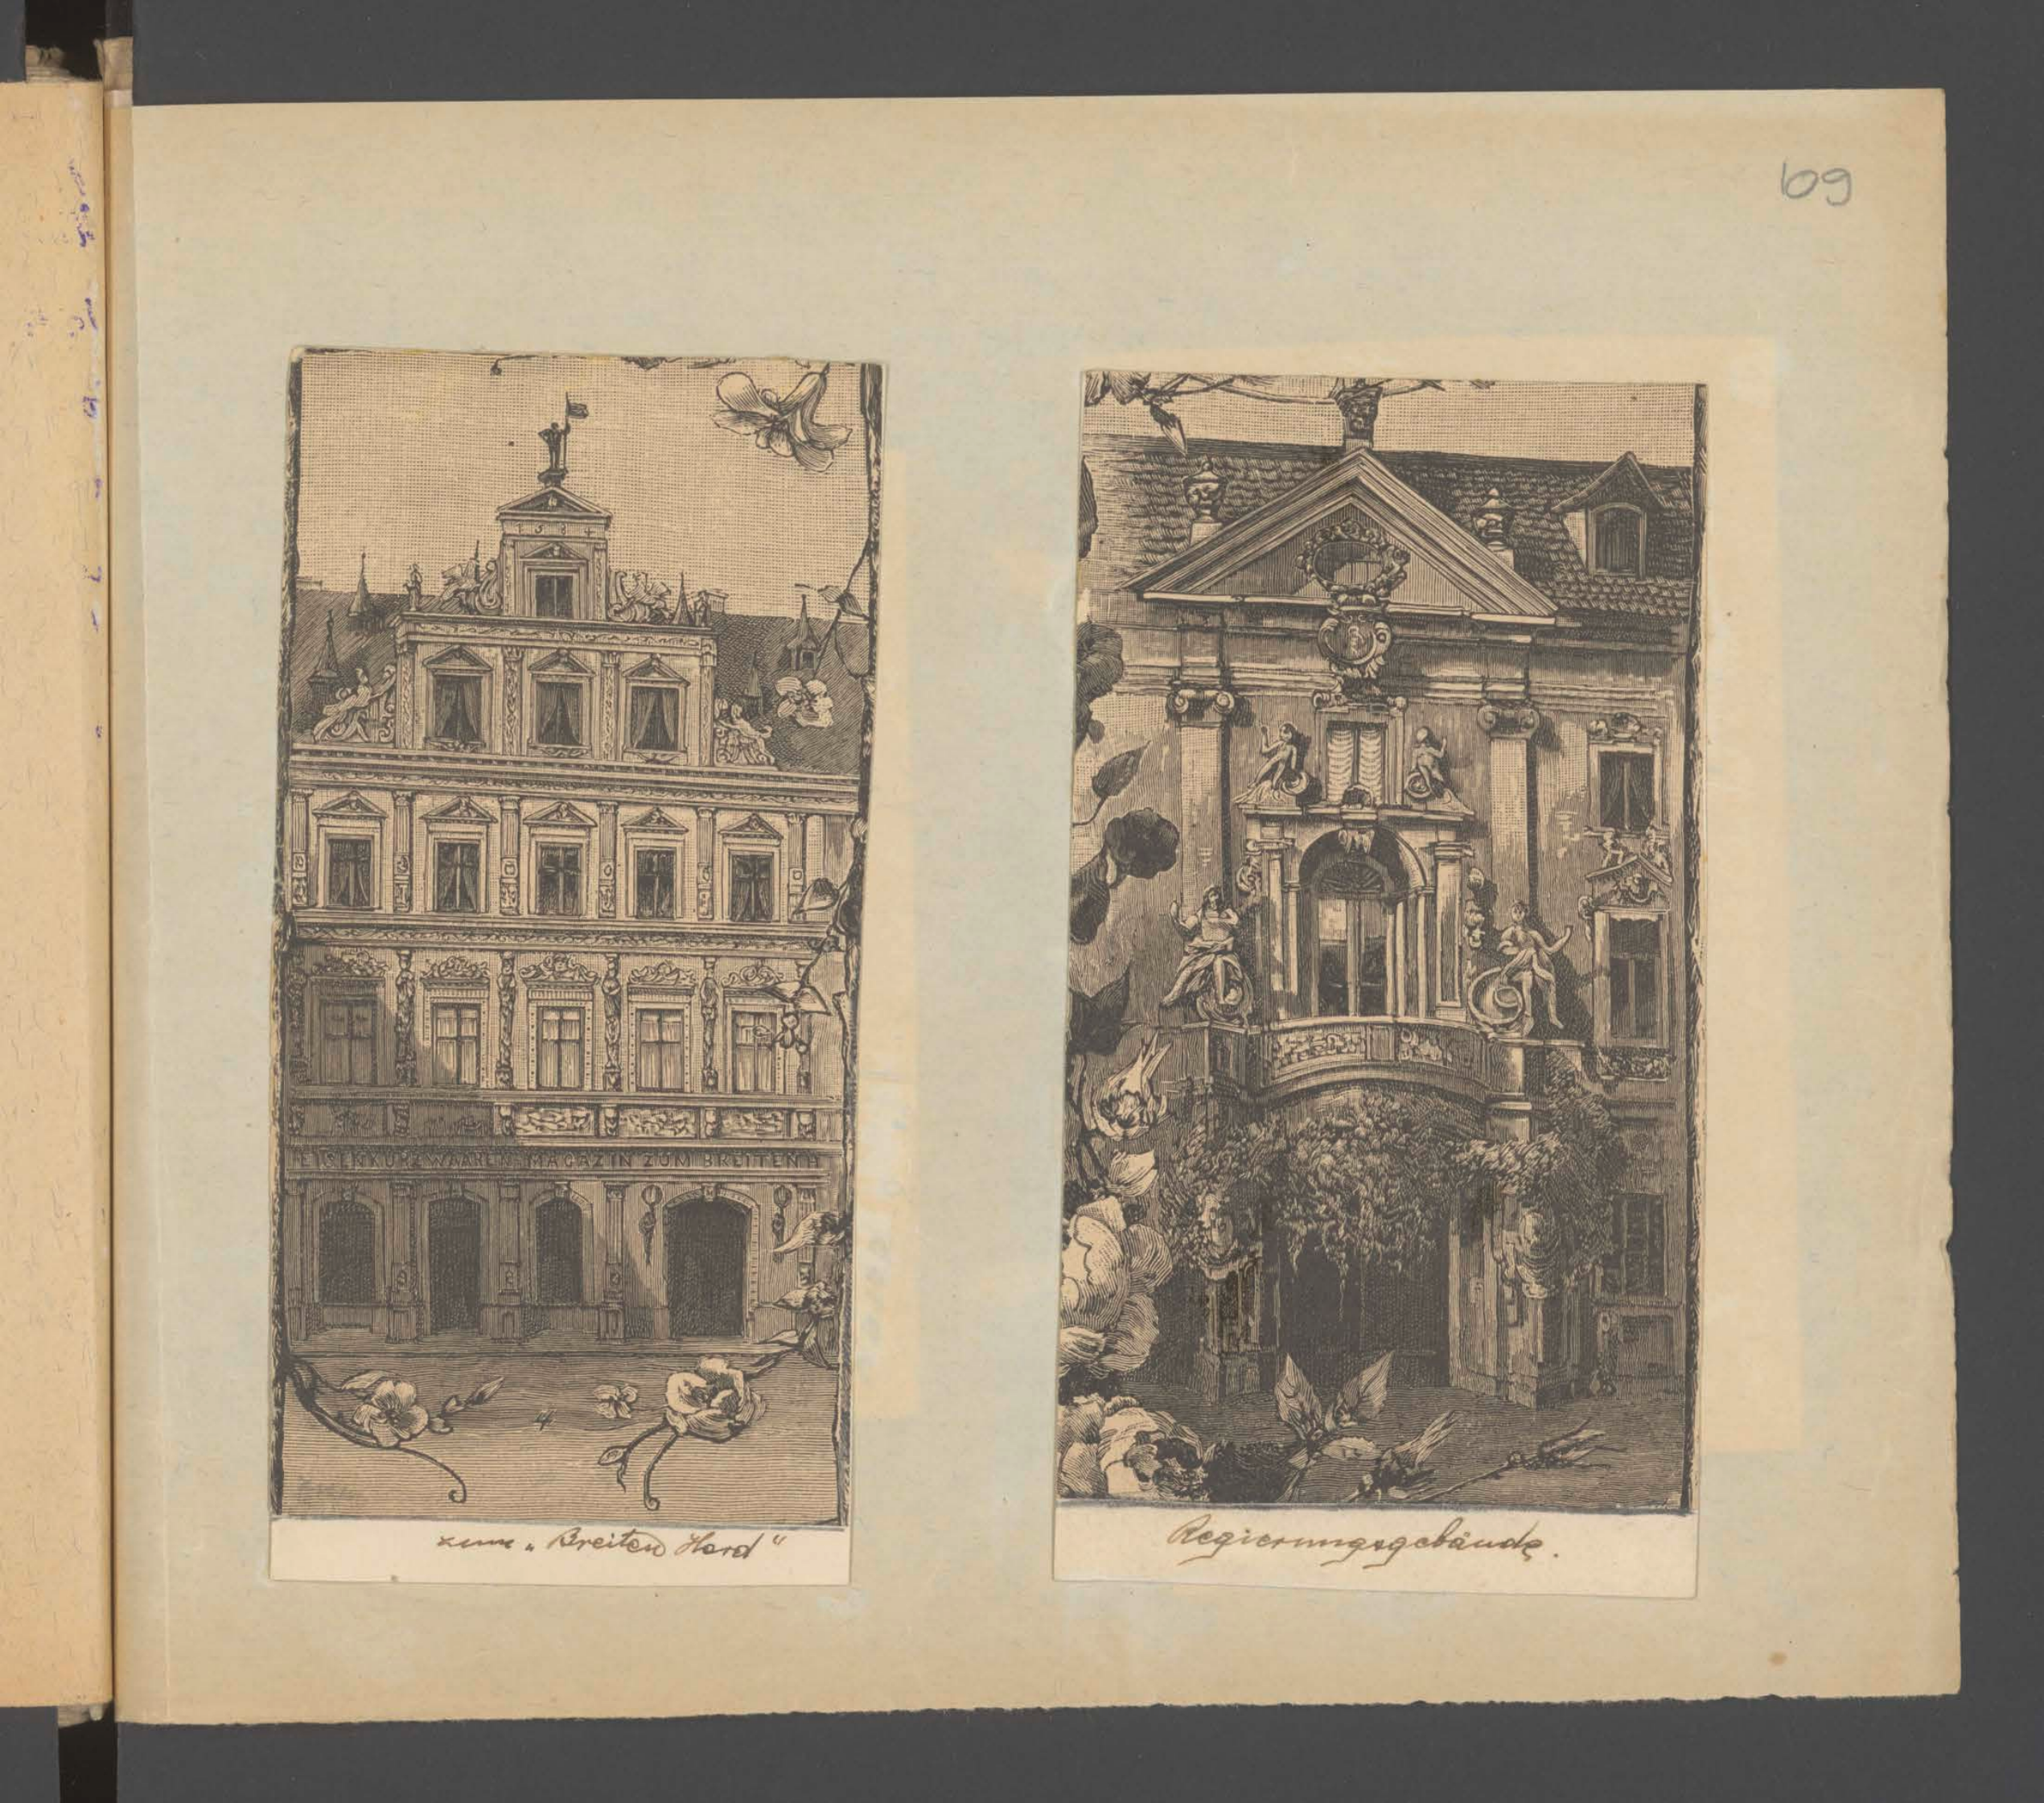 69
1584
EISENKURZWAAREN-MAGAZIN ZUM BREITEN H
zum „Breiten Herd“
Regierungsgebäude.